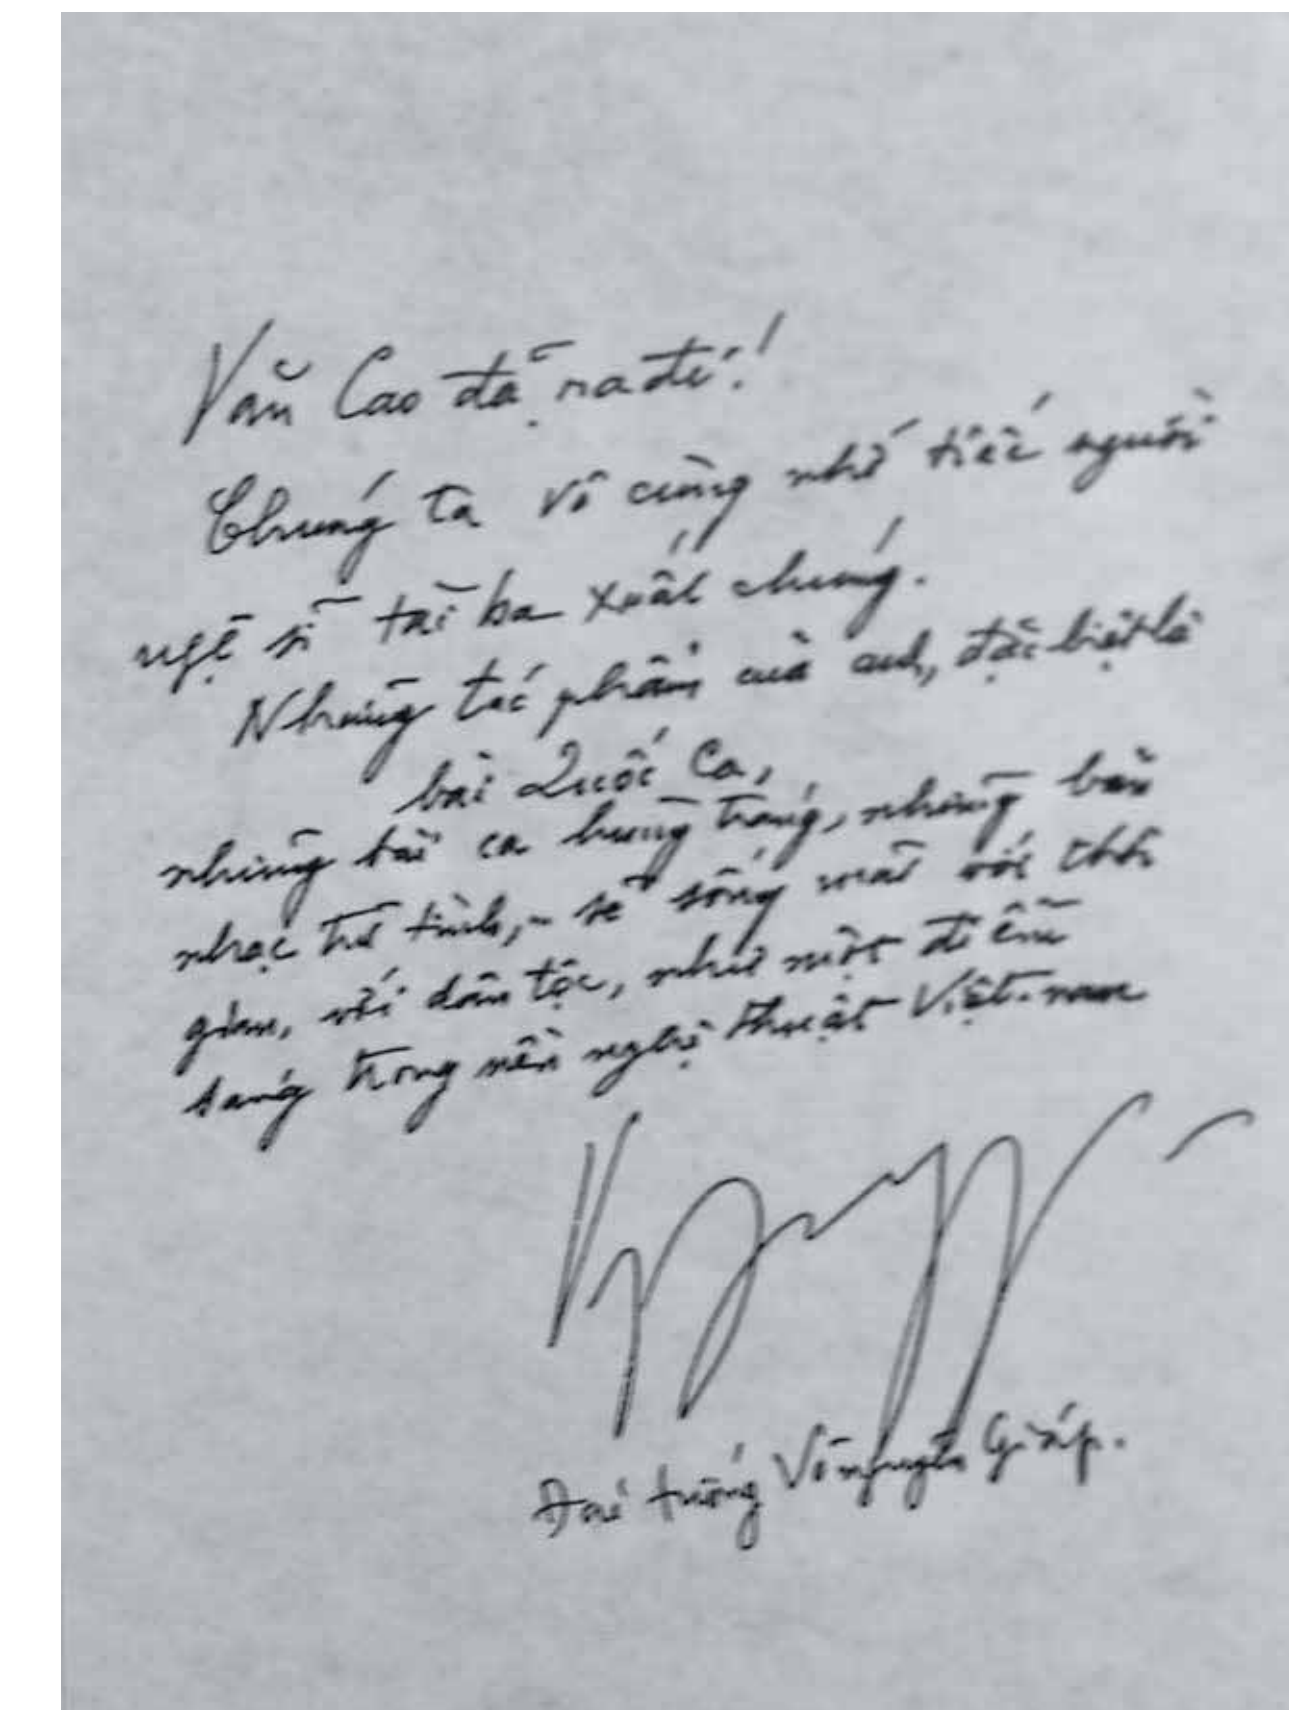 Văn Cao đã ra đi!
Chúng ta vô cùng nhớ tiếc người
nghệ sĩ tài ba xuất chúng.
Những tác phẩm của anh, đặc biệt là
bài Quốc Ca,
những bài ca hùng tráng, những bản
nhạc trữ tình, - sẽ sống mãi với thời
gian, với dân tộc, như một điểm
sáng trong nền nghệ thuật Việt-nam
Đại tướng Võ nguyên Giáp.